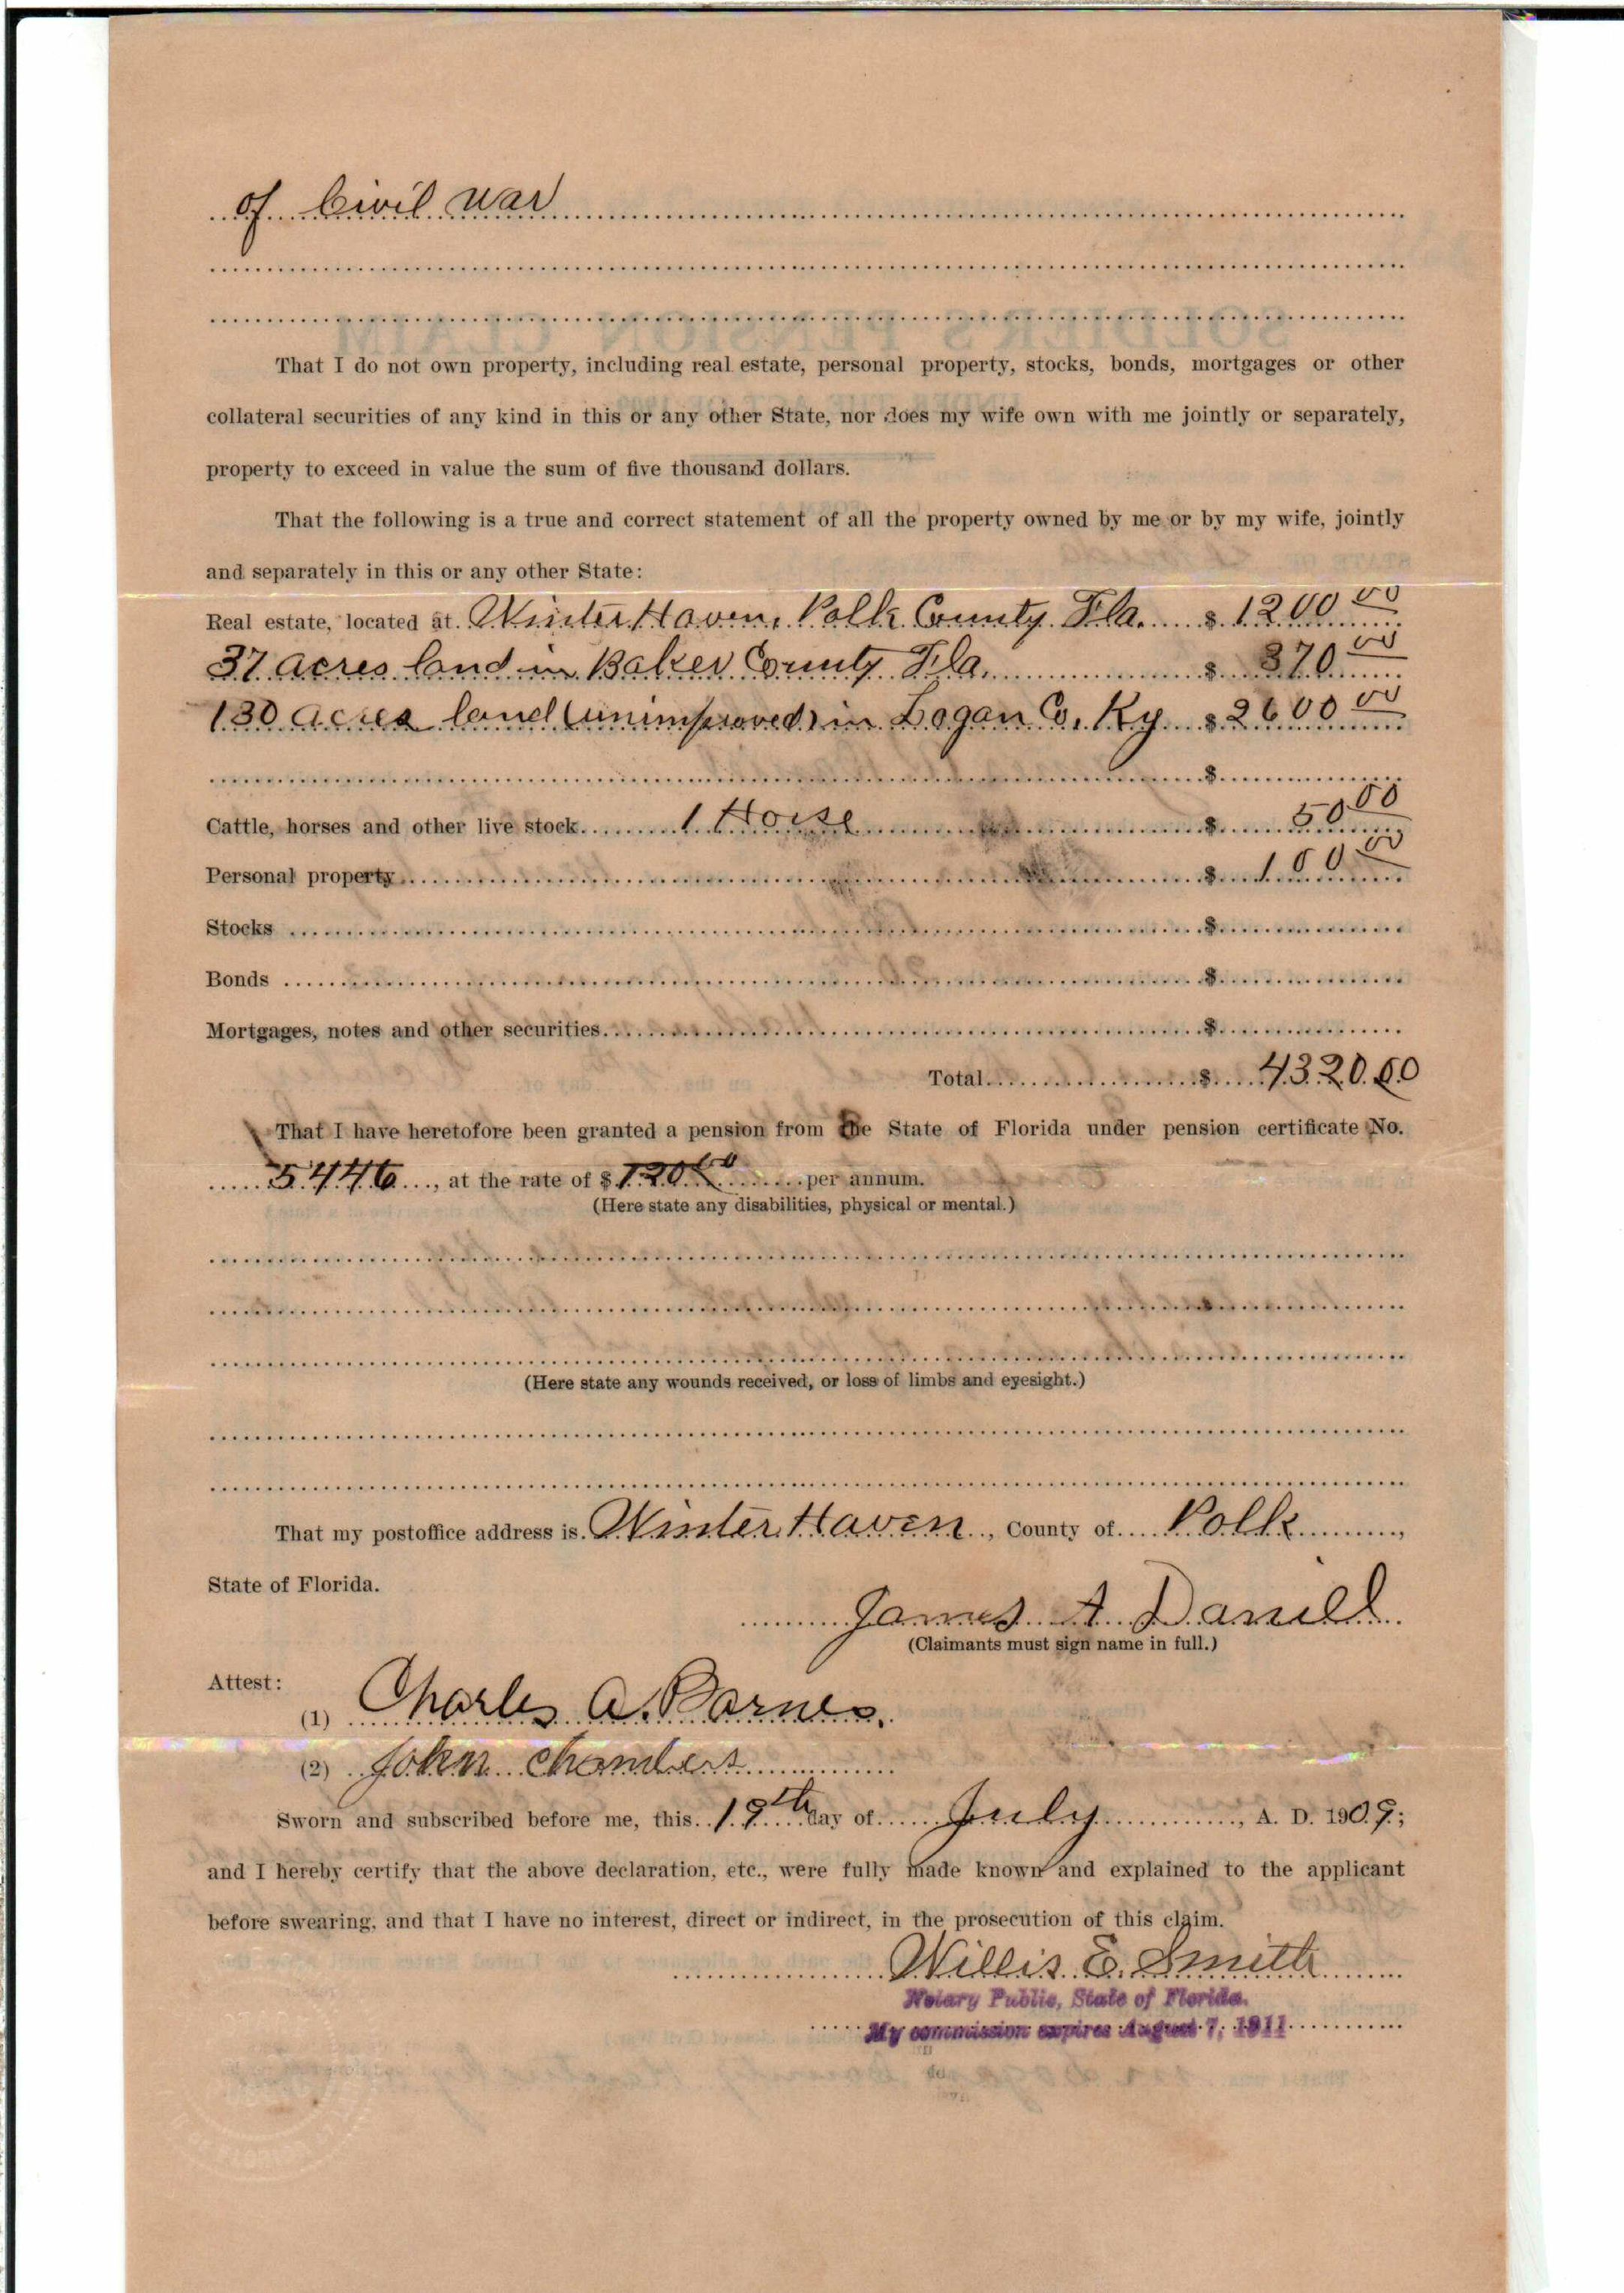 of Civil War
That I do not own property, including real estate, personal property, stocks, bonds, mortgages or other
collateral securities of any kind in this or any other State, nor does my wife own with me jointly or separately,
property to exceed in value the sum of five thousand dollars.
That the following is a true and correct statement of all the property owned by me or by my wife, jointly
and separately in this or any other State:
Real estate, located at Winter Haven, Polk County Fla. $ 1200.00
37 acres land in Baker County Fla. $ 370.00
130 acres land (unimproved) in Logan Co, Ky $ 2600.00
$
Cattle, horses and other live stock 1 Horse $ 50.00
Personal property $ 100.00
Stocks $
Bonds $
Mortgages, notes and other securities $
Total $ 4320.00
That I have heretofore been granted a pension from the State of Florida under pension certificate No.
5446, at the rate of $120.00 per annum.
(Here state any disabilities, physical or mental.)
(Here state any wounds received, or loss of limbs and eyesight.)
That my postoffice address is Winter Haven, County of Polk,
State of Florida.
James A Daniell
(Claimants must sign name in full.)
Attest:
(1) Charles A. Barnes.
(2) John Chambers
Sworn and subscribed before me, this 19th day of July, A. D. 1909;
and I hereby certify that the above declaration, etc., were fully made known and explained to the applicant
before swearing, and that I have no interest, direct or indirect, in the prosecution of this claim.
Willis E. Smith
Notary Public, State of Florida.
My commission expires August 7, 1911